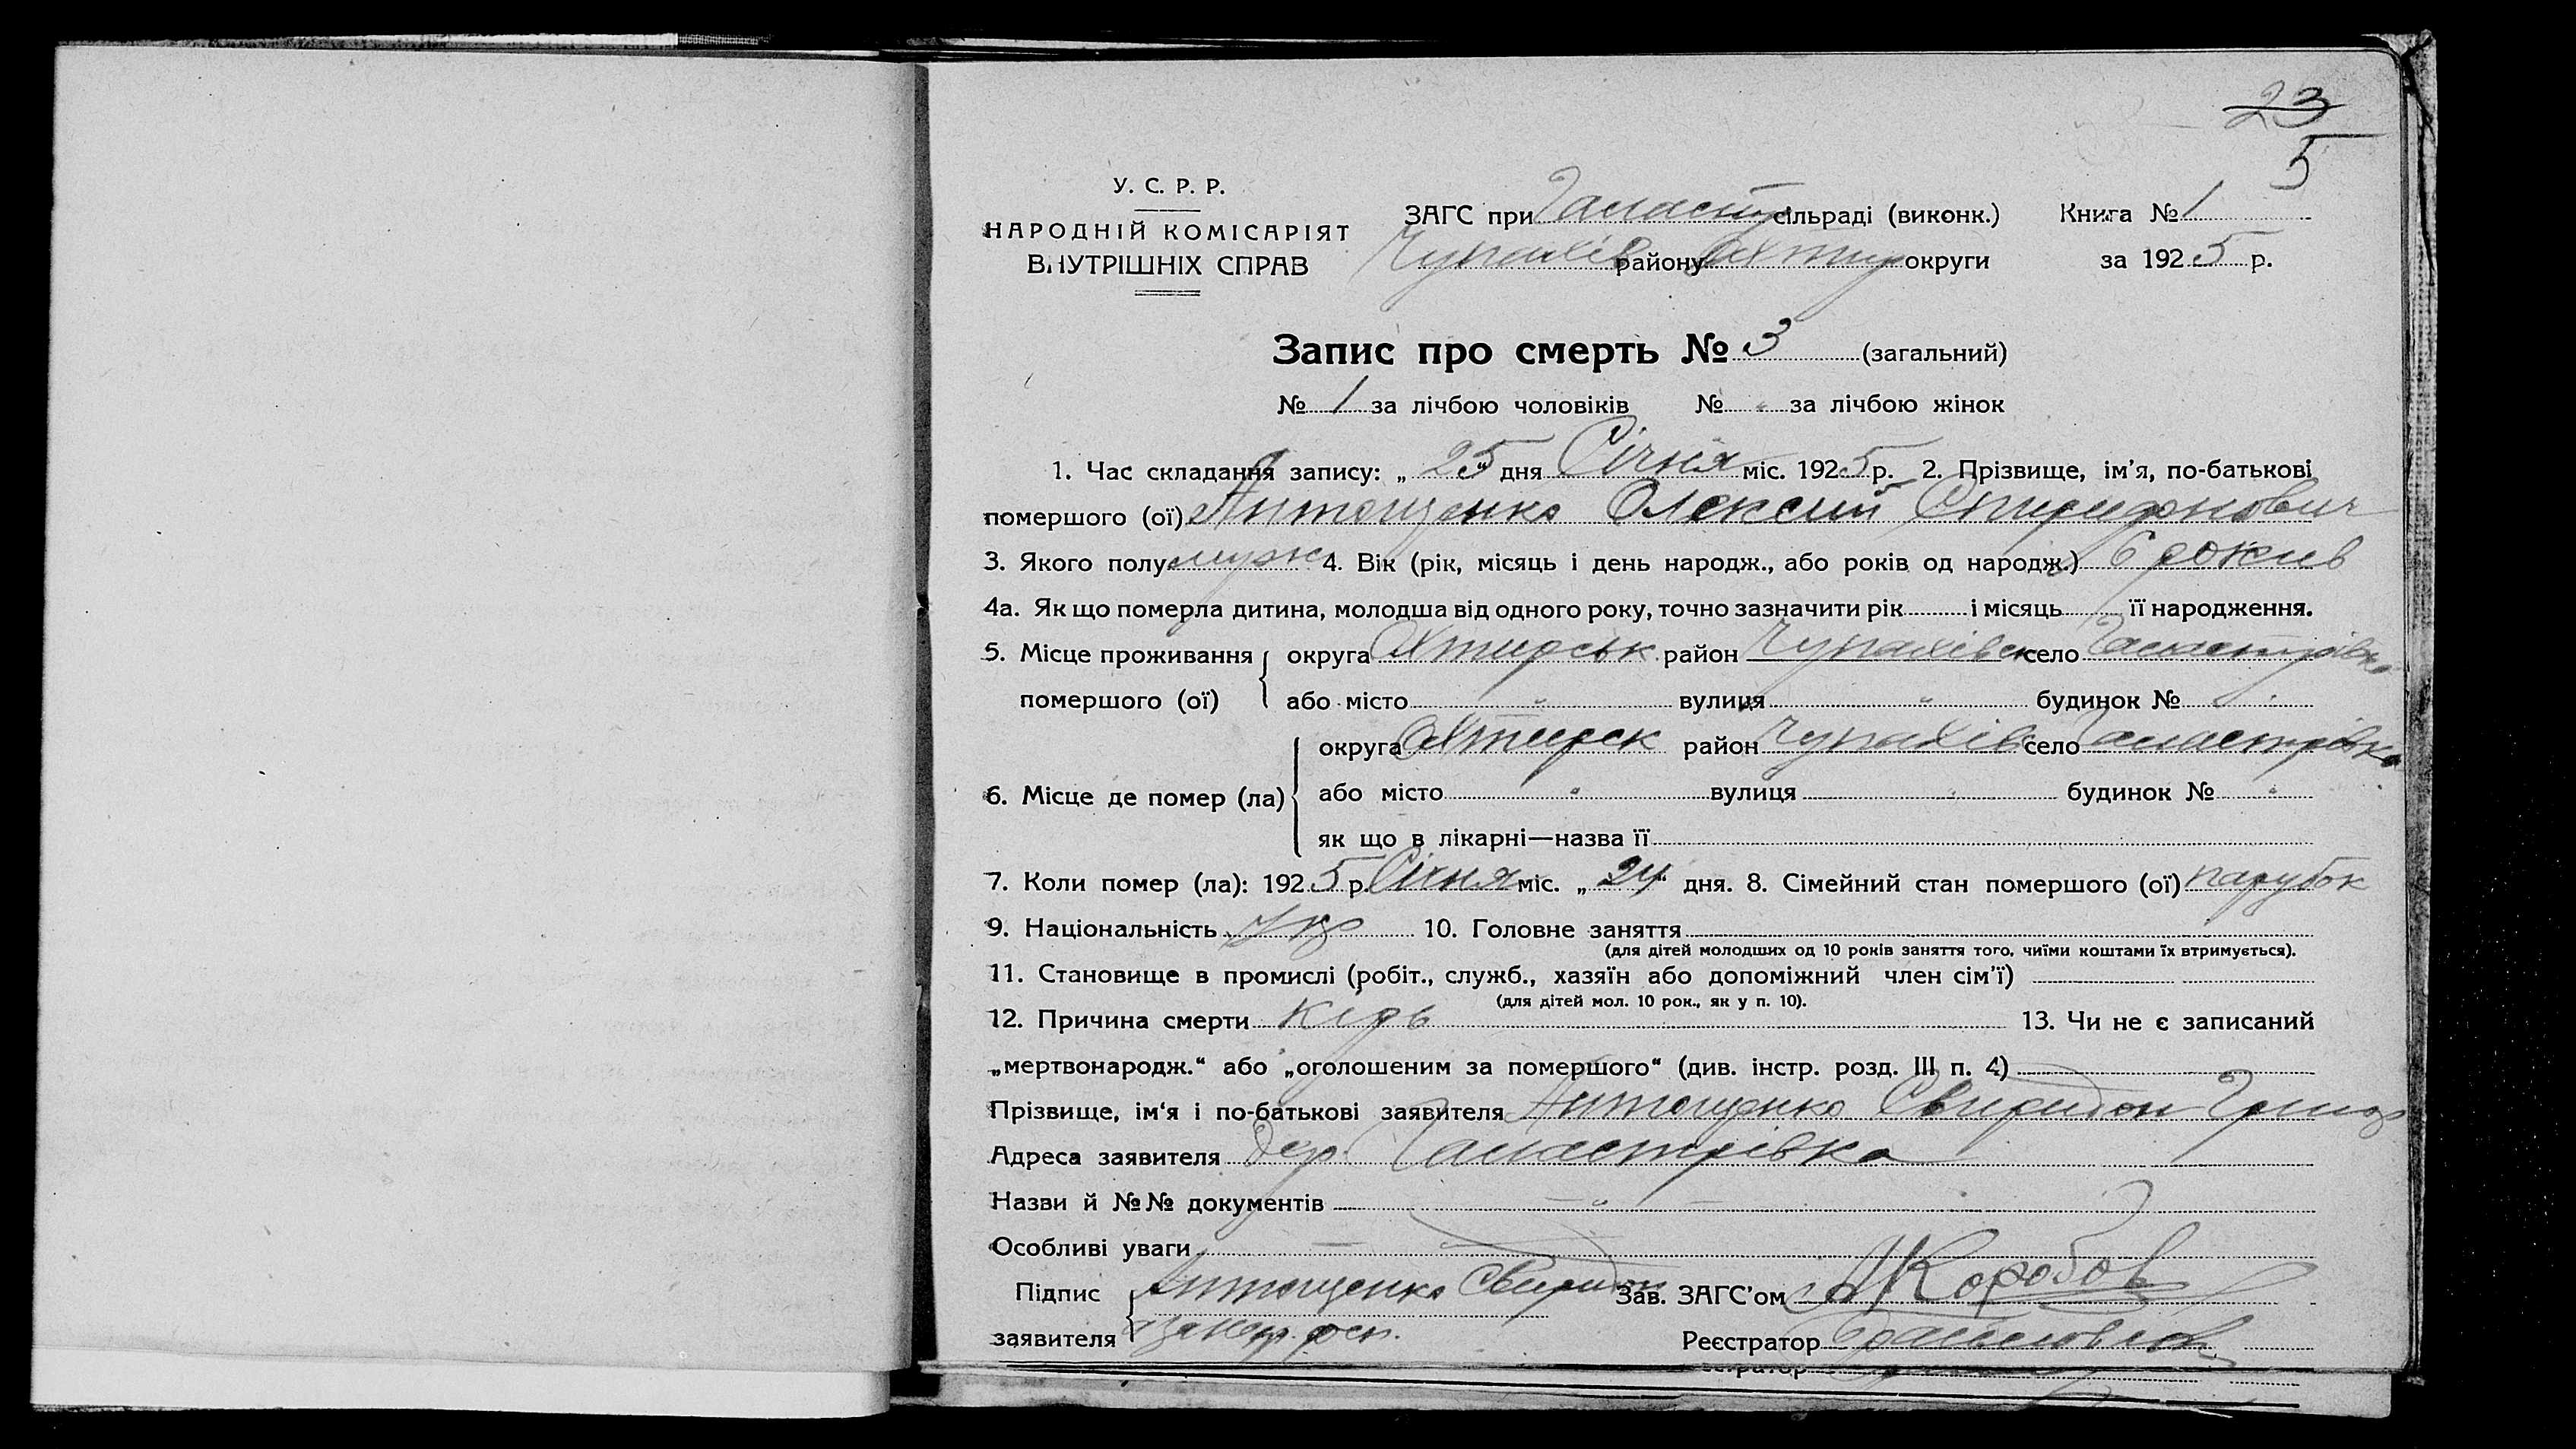 23
5
У. С. Р. Р.
НАРОДНІЙ КОМІСАРІЯТ
ВНУТРІШНІХ СПРАВ
ЗАГС при сільраді (виконк.) Книга № 1
Чупахів району Охтир округи за 1925 р.
Запис про смерть № 3 (загальний)
№ 1 за лічбою чоловіків № " за лічбою жінок
1. Час складання запису: „ 25 " дня Січня міс. 1925 р. 2. Прізвище, ім'я, по-батькові
помершого (ої) Антощенко Олексий Спиридонович
3. Якого полу мужс 4. Вік (рік, місяць і день народж., або років од народж.) 6 рокив
4а. Як що померла дитина, молодша від одного року, точно зазначити рік і місяць її народження.
5. Місце проживання округа Охтирськ район Чупахівск село
помершого (ої) або місто " вулиця " будинок № "
округа Охтирск район Чупахів село
6. Місце де помер (ла) або місто " вулиця " будинок № "
як що в лікарні—назва її
7. Коли помер (ла): 1925 р. Січня міс. „ 24 " дня. 8. Сімейний стан помершого (ої) парубок
9. Національність Укр 10. Головне заняття
(для дітей молодших од 10 років заняття того, чиїми коштами їх втримується).
11. Становище в промислі (робіт., служб., хазяїн або допоміжний член сім'ї)
(для дітей мол. 10 рок., як у п. 10).
12. Причина смерти кірь 13. Чи не є записаний
„мертвонародж.“ або „оголошеним за помершого“ (див. інстр. розд. III п. 4)
Прізвище, ім'я і по-батькові заявителя Антощенко Свиридон
Адреса заявителя дер.
Назви й №№ документів — " —
Особливі уваги —
Підпис Антощенко Свиридон Зав. ЗАГС'ом Коробов
заявителя Реєстратор